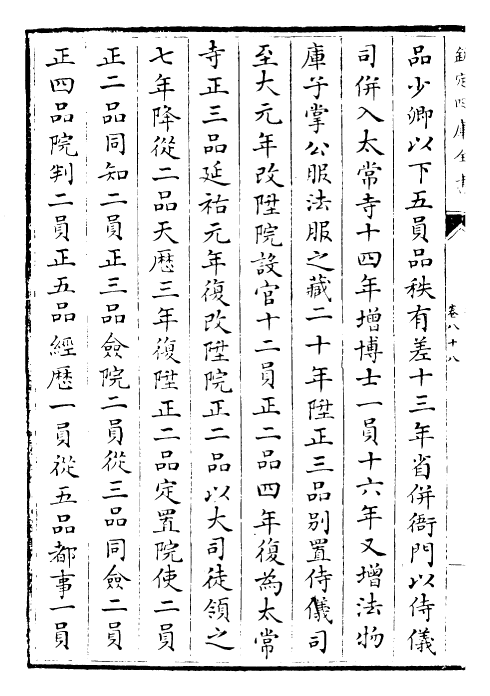 欽定四庫全書
卷八十八
品少卿以下五員品秩有差十三年省併衙門以侍儀
司併入太常寺十四年增博士一員十六年又增法物
庫子掌公服法服之藏二十年陞正三品別置侍儀司
至大元年改陞院設官十二員正二品四年復為太常
寺正三品延祐元年復改陞院正二品以大司徒領之
七年降從二品天厯三年復陞正二品定置院使二員
正二品同知二員正三品僉院二員從三品同僉二員
正四品院判二員正五品經厯一員從五品都事一員